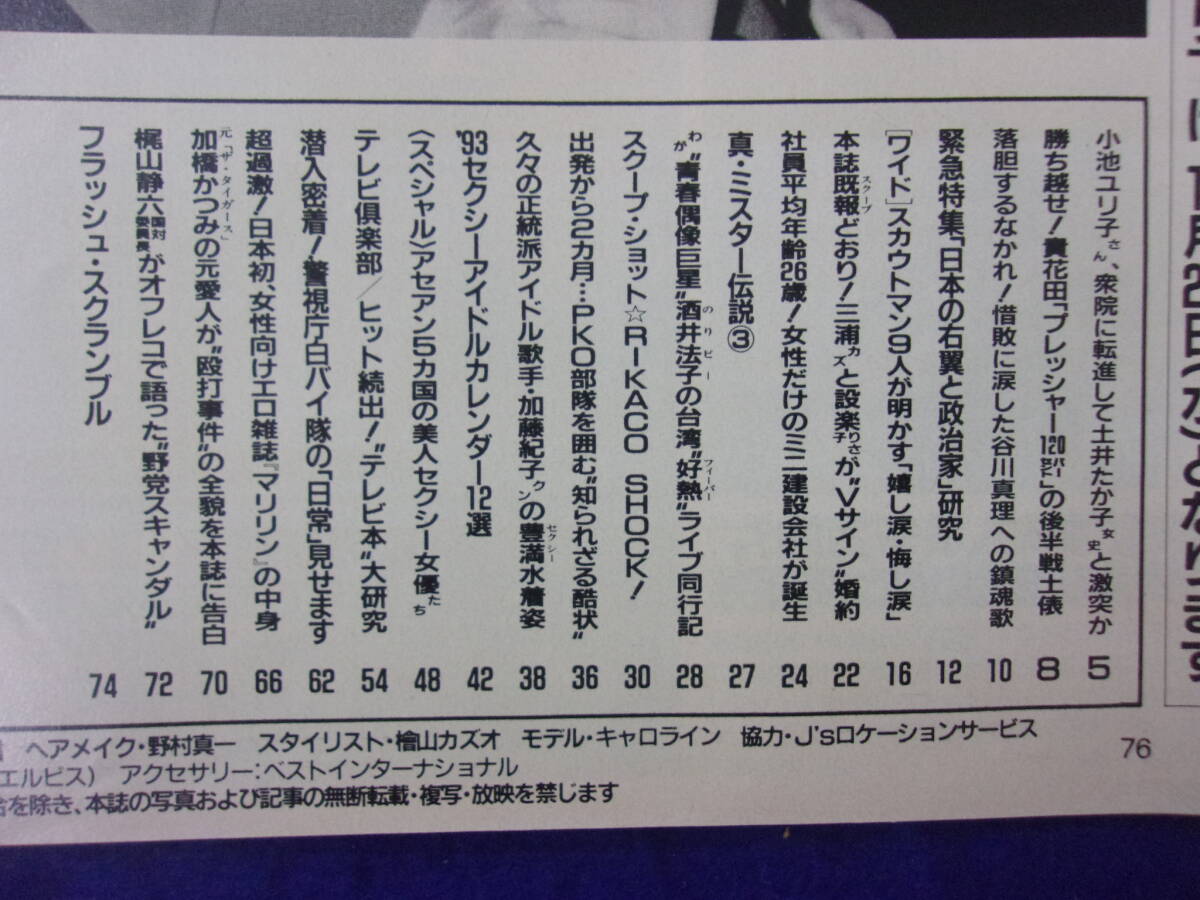 小池ユリ子さん、衆院に転進して土井たか子女史と激突か 5
勝ち越せ!貴花田「プレッシャー120パーセント」の後半戦土俵 8
落胆するなかれ!惜敗に涙した谷川真理への鎮魂歌 10
緊急特集「日本の右翼と政治家」研究 12
[ワイド]スカウトマン9人が明かす「嬉し涙・悔し涙」 16
本誌既報スクープどおり!三浦カズと設楽りさ子が"Vサイン"婚約 22
社員平均年齢26歳!女性だけのミニ建設会社が誕生 24
真・ミスター伝説③ 27
わが"青春偶像巨星"酒井法子のりピーの台湾"好熱フィーバー"ライブ同行記 28
スクープ・ショット☆RIKACO SHOCK! 30
出発から2カ月…PKO部隊を囲む"知られざる酷状" 36
久々の正統派アイドル歌手・加藤紀子クンの豊満セクシー水着姿 38
'93セクシーアイドルカレンダー12選 42
〈スペシャル〉アセアン5カ国の美人セクシー女優たち 48
テレビ倶楽部/ヒット続出!"テレビ本"大研究 54
潜入密着!警視庁白バイ隊の「日常」見せます 62
超過激!日本初、女性向けエロ雑誌『マリリン』の中身 66
元「ザ・タイガース」加橋かつみの元愛人が"殴打事件"の全貌を本誌に告白 70
梶山静六国対委員長がオフレコで語った"野党スキャンダル" 72
フラッシュ・スクランブル 74
ヘアメイク・野村真一 スタイリスト・檜山カズオ モデル・キャロライン 協力・J'sロケーションサービス
エルビス) アクセサリー:ベストインターナショナル
を除き、本誌の写真および記事の無断転載・複写・放映を禁じます
76